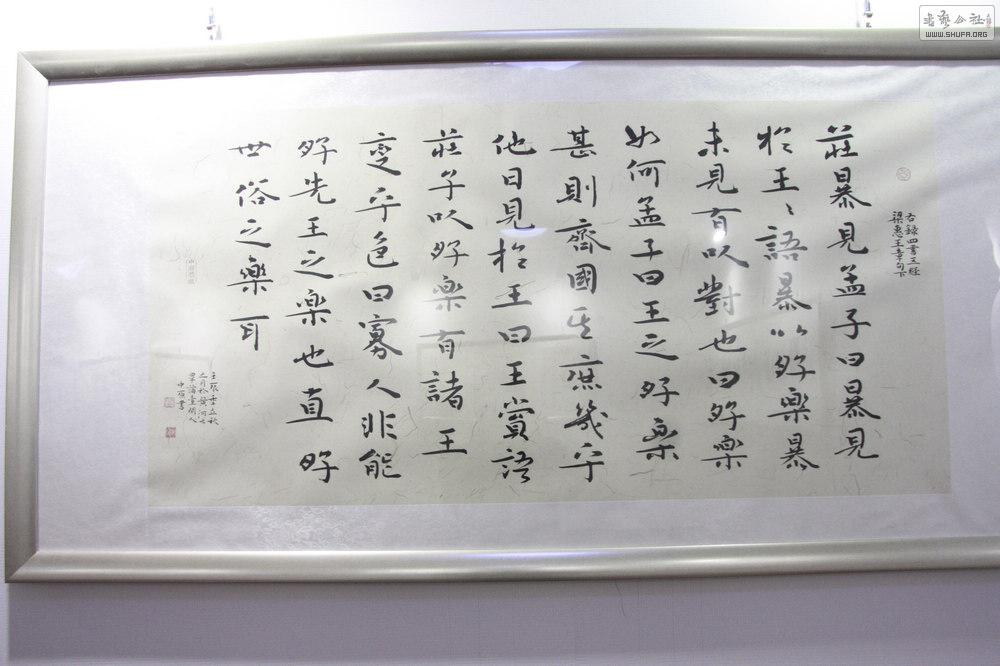 書藝公社
WWW.SHUFA.ORG
右録四書
梁惠王章句下
莊暴見孟子曰暴見
於王〻語暴以好楽暴
未見有以對也曰好楽
如何孟子曰王之好楽
甚則齊國其庶幾乎
他日見於王曰王嘗語
莊子以好楽有諸王
変乎色曰寡人非能
好先王之楽也直好
世俗之楽耳